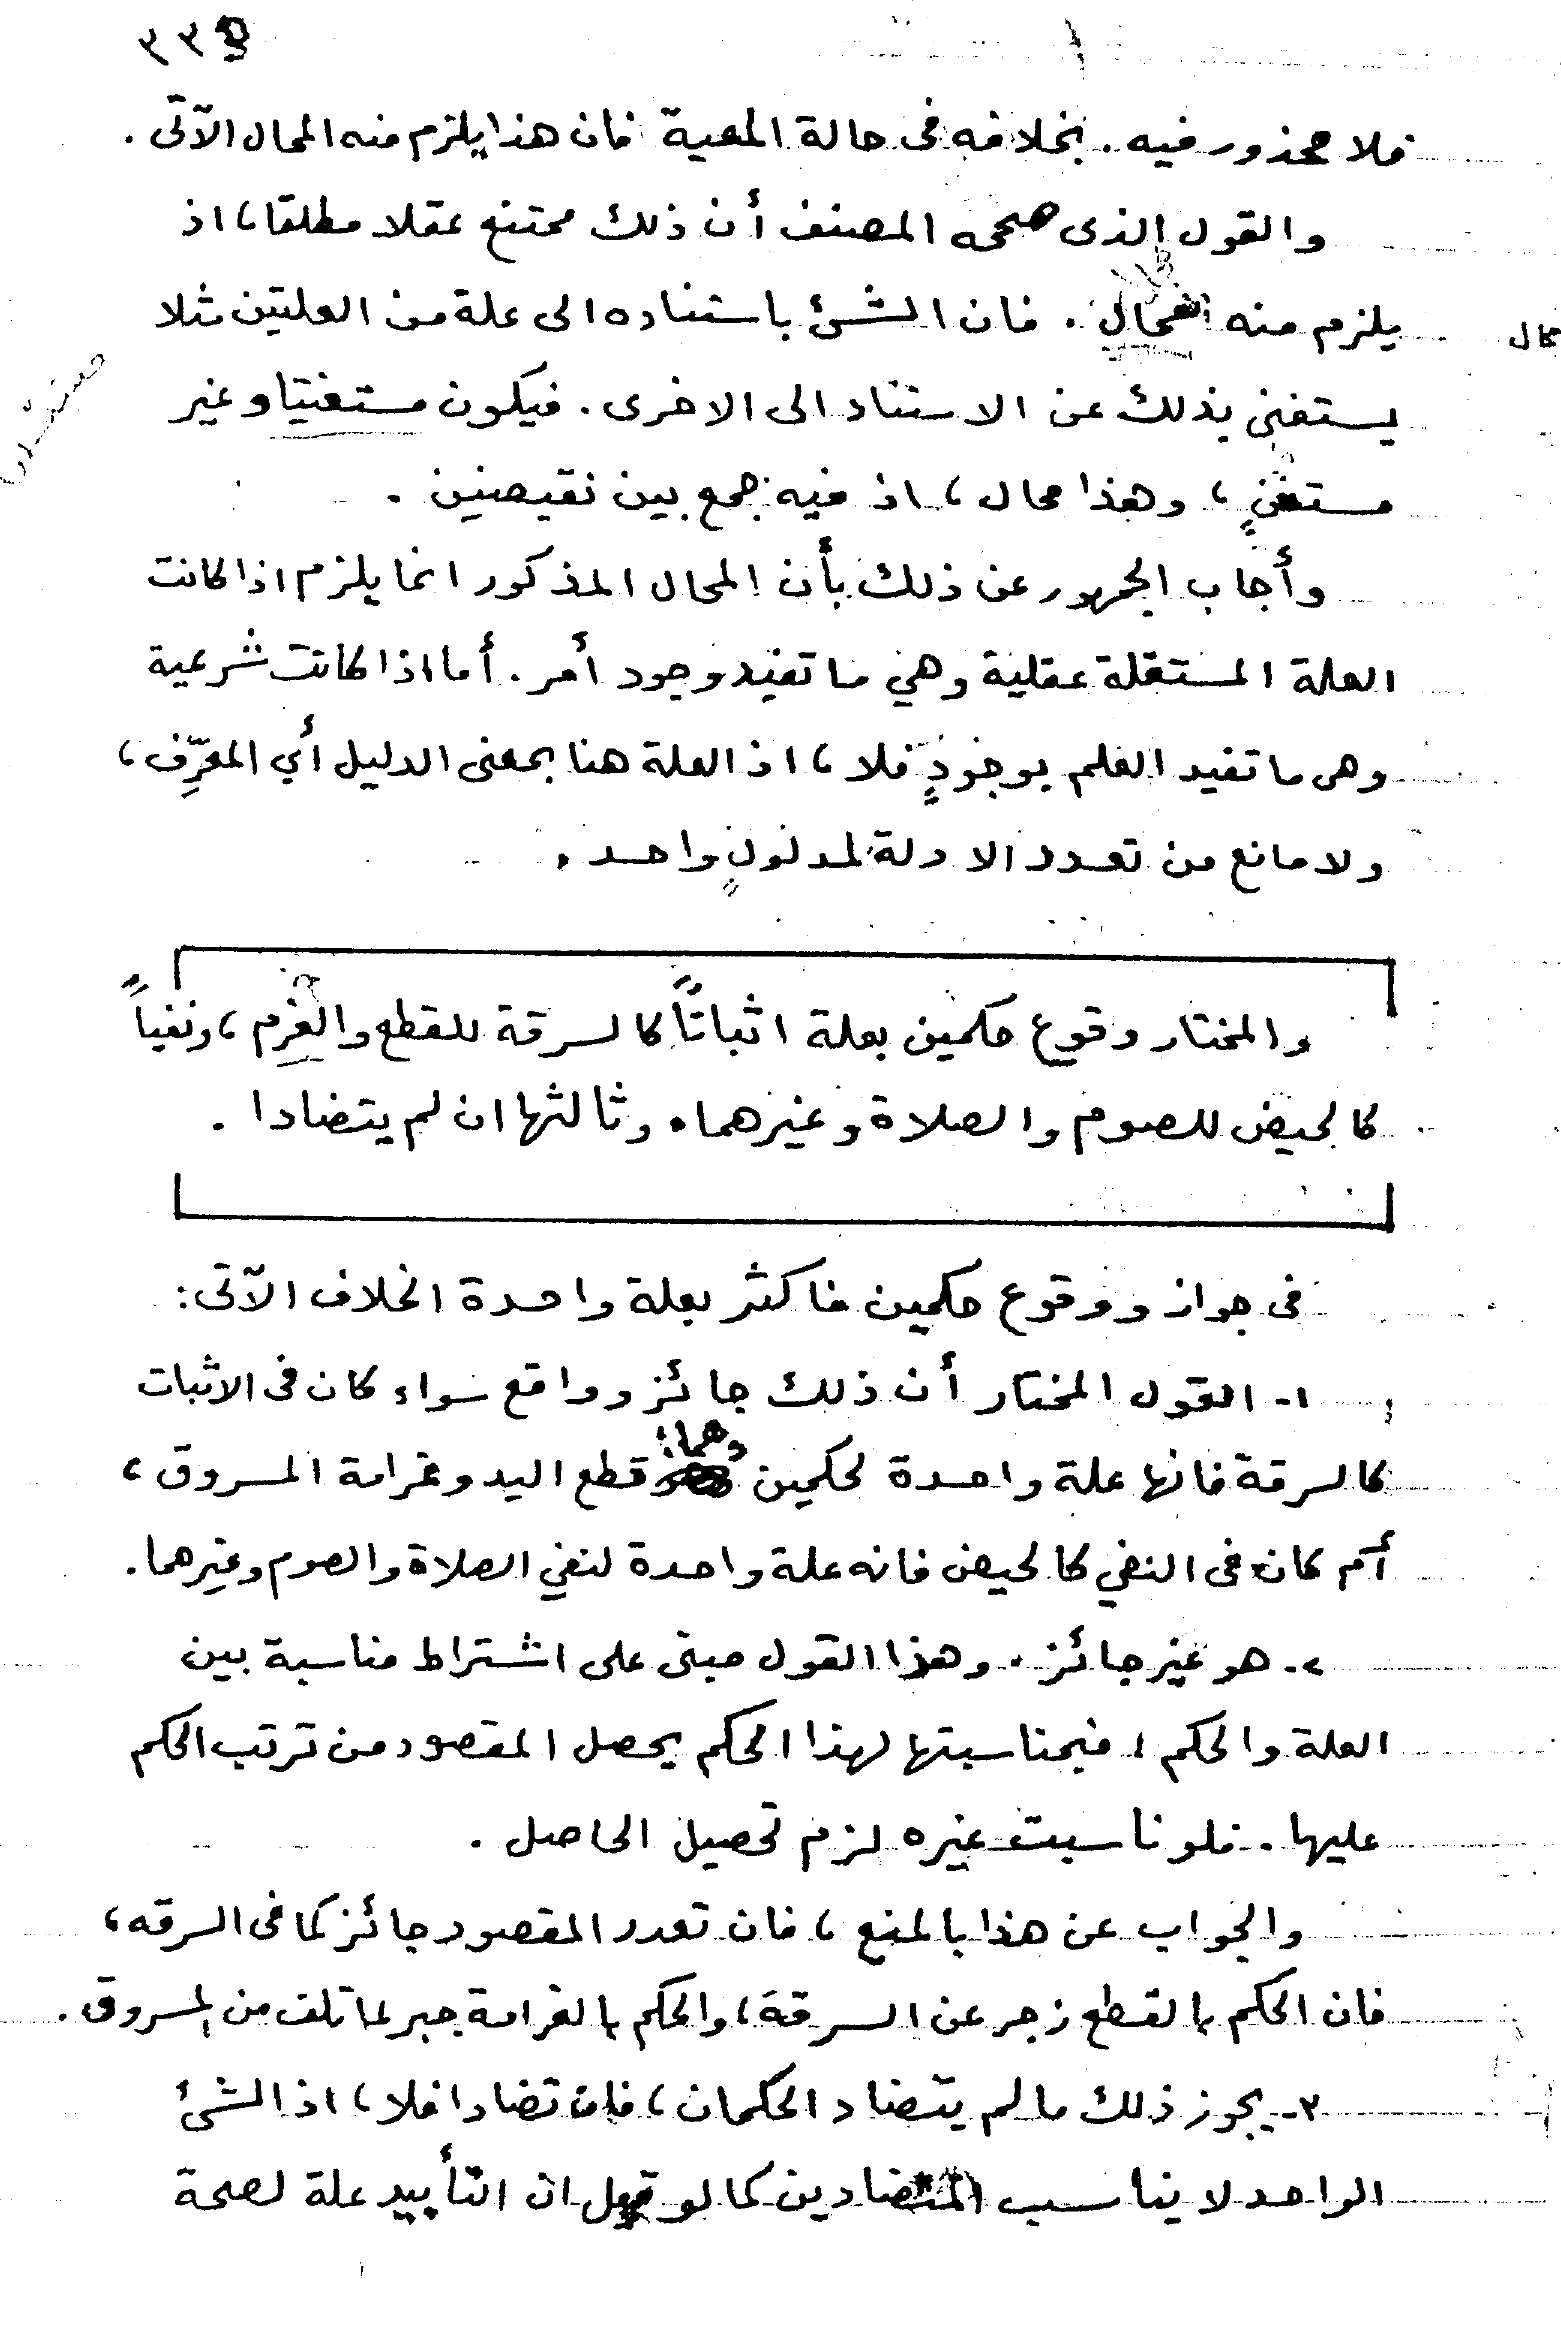 فلا محذور فيه. بخلافه فى حالة المعية فان هذا يلزم منه المحال الآتى.
والقول الذى صححه المصنف أن ذلك ممتنع عقلا مطلقا، اذ
يلزم منه المحال. فان الشئ باستناده الى علة من العلتين مثلا
محال
يستغنى بذلك عن الاستناد الى الاخرى. فيكون مستغنيا وغير
مستغنٍ، وهذا محال، اذ فيه جمع بين نقيضين.
وأجاب الجمهور عن ذلك بأن المحال المذكور انما يلزم اذا كانت
العلة المستقلة عقلية وهي ما تفيد وجود أمر. أما اذا كانت شرعية
وهى ما تفيد العلم بوجودٍ فلا، اذ العلة هنا بمعنى الدليل أي المعرِّف،
ولا مانع من تعدد الادلة لمدلولٍ واحد.
والمختار وقوع حكمين بعلة اثباتاً كالسرقة للقطع والغرم، ونفياً
كالحيض للصوم والصلاة وغيرهما. وثالثها ان لم يتضادا.
فى جواز ووقوع حكمين فاكثر بعلة واحدة الخلاف الآتى:
١- القول المختار أن ذلك جائز وواقع سواء كان فى الاثبات
كالسرقة فانها علة واحدة لحكمين وهما: قطع اليد وغرامة المسروق،
أم كان فى النفي كالحيض فانه علة واحدة لنفي الصلاة والصوم وغيرهما.
٢- هو غير جائز. وهذا القول مبنى على اشتراط مناسبة بين
العلة والحكم، فبمناسبتها لهذا الحكم يحصل المقصود من ترتب الحكم
عليها. فلو ناسبت غيره لزم تحصيل الحاصل.
والجواب عن هذا بالمنع، فان تعدد المقصود جائز كما فى السرقه،
فان الحكم بالقطع زجر عن السرقة، والحكم بالغرامة جبر لما تلف من المسروق.
٣- يجوز ذلك ما لم يتضاد الحكمان، فان تضادا فلا، اذ الشئ
الواحد لا يناسب المتضادين كما لو قيل ان التأبيد علة لصحة